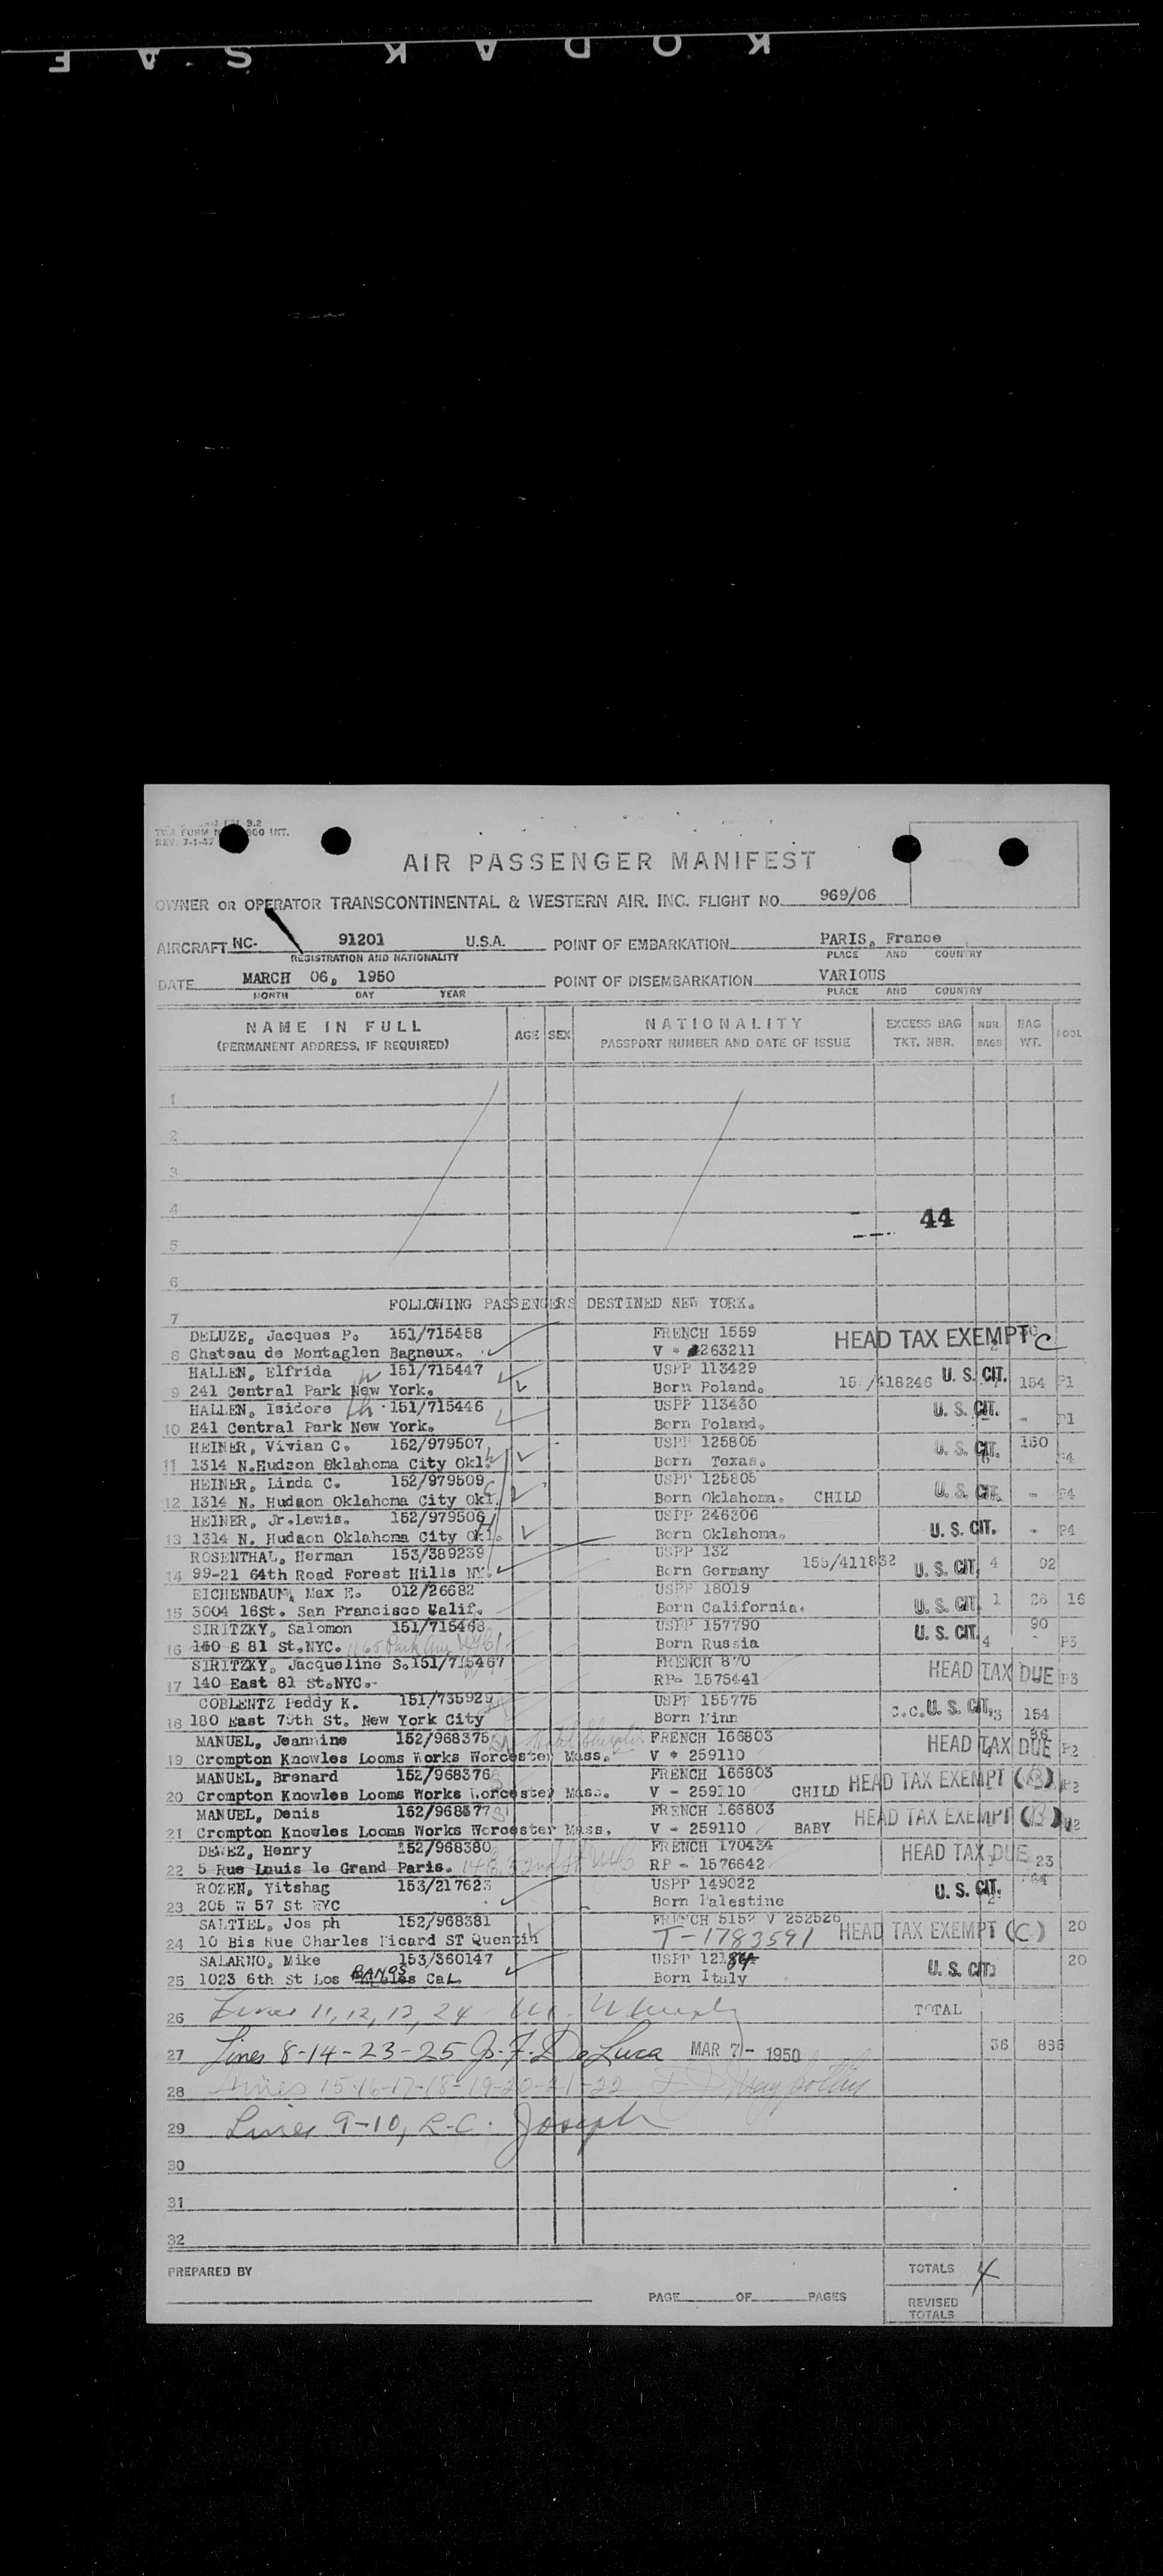 KODAK SAF
TWA FORM
REV. 7-1-47
AIR PASSENGER MANIFEST
OWNER OR OPERATOR TRANSCONTINENTAL & WESTERN AIR, INC. FLIGHT NO. 969/06
AIRCRAFT NC- 91201 U.S.A. POINT OF EMBARKATION PARIS, France
REGISTRATION AND NATIONALITY PLACE AND COUNTRY
DATE MARCH 06, 1950 POINT OF DISEMBARKATION VARIOUS
MONTH DAY YEAR PLACE AND COUNTRY
NAME IN FULL AGE SEX NATIONALITY EXCESS BAG NBR. BAG POOL
(PERMANENT ADDRESS, IF REQUIRED) PASSPORT NUMBER AND DATE OF ISSUE TKT. NBR. BAGS WT.
1
2
3
4
44
5
6
FOLLOWING PASSENGERS DESTINED NEW YORK.
7
DELUZE, Jacques P. 151/715458 FRENCH 1559 HEAD TAX EXEMPT C
8 Chateau de Montaglen Bagneux. V - 263211
HALLEN, Elfrida 151/715447 USPP 113429 U. S. CIT.
9 241 Central Park New York. Born Poland. /418246 154 P1
HALLEN, Isidore 151/715446 USPP 113430 U. S. CIT.
10 241 Central Park New York. Born Poland. - P1
HEINER, Vivian C. 152/979507 USPP 125805 U. S. CIT. 150
11 1314 N.Hudson Oklahoma City Okl. Born Texas. P4
HEINER, Linda C. 152/979509 USPP 125805 U. S. CIT.
12 1314 N. Hudson Oklahoma City Okl. Born Oklahoma. CHILD - P4
HEINER, Jr.Lewis. 152/979506 USPP 246306 U. S. CIT.
13 1314 N. Hudson Oklahoma City Okl. Born Oklahoma. - P4
ROSENTHAL, Herman 153/389239 USPP 132 155/411832 4 92
14 99-21 64th Road Forest Hills NY. Born Germany U. S. CIT.
EICHENBAUM, Max E. 012/26682 USPP 18019
15 3004 16St. San Francisco Calif. Born California. U. S. CIT. 1 26 16
SIRITZKY, Salomon 151/715468 USPP 157790 U. S. CIT. 90
16 140 E 81 St.NYC. 1165 Park Ave Born Russia 4 - P3
SIRITZKY, Jacqueline S.151/715467 FRENCH 870 HEAD TAX DUE
17 140 East 81 St.NYC.- RP- 1575441 P3
COBLENTZ Peddy K. 151/735929 USPP 155775 U. S. CIT.
18 180 East 79th St. New York City Born Minn 3 154
MANUEL, Jeannine 152/968375 FRENCH 166803 HEAD TAX DUE
19 Crompton Knowles Looms Works Worcester Mass. V - 259110 P2
MANUEL, Brenard 152/968376 FRENCH 166803 HEAD TAX EXEMPT (B)
20 Crompton Knowles Looms Works Worcester Mass. V - 259110 CHILD P2
MANUEL, Denis 152/968377 FRENCH 166803 HEAD TAX EXEMPT (B)
21 Crompton Knowles Looms Works Worcester Mass. V - 259110 BABY P2
DEWEZ, Henry 152/968380 FRENCH 170434 HEAD TAX DUE
22 5 Rue Louis le Grand Paris. RP - 1576642 23
ROZEN, Yitshag 153/217623 USPP 149022 U. S. CIT. 44
23 205 W 57 St NYC Born Palestine 2
SALTIEL, Jos ph 152/968381 FRENCH 5152 V 252526 HEAD TAX EXEMPT (C) 20
24 10 Bis Rue Charles Picard ST Quentin T-1783591
SALARNO, Mike 153/360147 USPP 12184 U. S. CIT. 20
25 1023 6th St Los BANOS Cal. Born Italy
26 Lines 11, 12, 13, 24 TOTAL
27 Lines 8-14-23-25 J. F. DeLuca MAR 7 - 1950 36 886
28 Lines 15-16-17-18-19-20-21-22
29 Lines 9-10, R.C. Joseph
30
31
32
PREPARED BY TOTALS 4
PAGE OF PAGES REVISED TOTALS